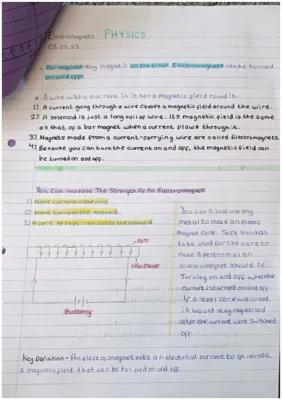 Electromagnets PHYSICS
03.05.23
• Bar magnets stay magnetic all the time. Electromagnets can be turned
on and off.
• A wire with a current in it has a magnetic field round it.
1) A current going through a wire causes a magnetic field around the wire.
2) A solenoid is just a long coil of wire. Its magnetic field is the same
as that of a bar magnet when a current flows through it.
3) Magnets made from a current-carrying wire are called Electromagnets.
4) Because you can turn the current on and off, the magnetic field can
be turned on and off.
You Can Increase The Strength Of An Electromagnet
1) More current in the wire.
2) More turns on the solenoid.
3) A core of soft iron inside the solenoid.
You can't just use any
metal to make an electro
magnet core. Soft iron has
to be used for the core to
make it perform as an
electromagnet should. i.e:
Turning on and off when the
current is turned on and off.
If a steel core was used,
it would stay magnetised
after the current was switched
off.
Battery
Key Definition - An electromagnet uses an electrical current to generate
a magnetic field that can be turned on and off.